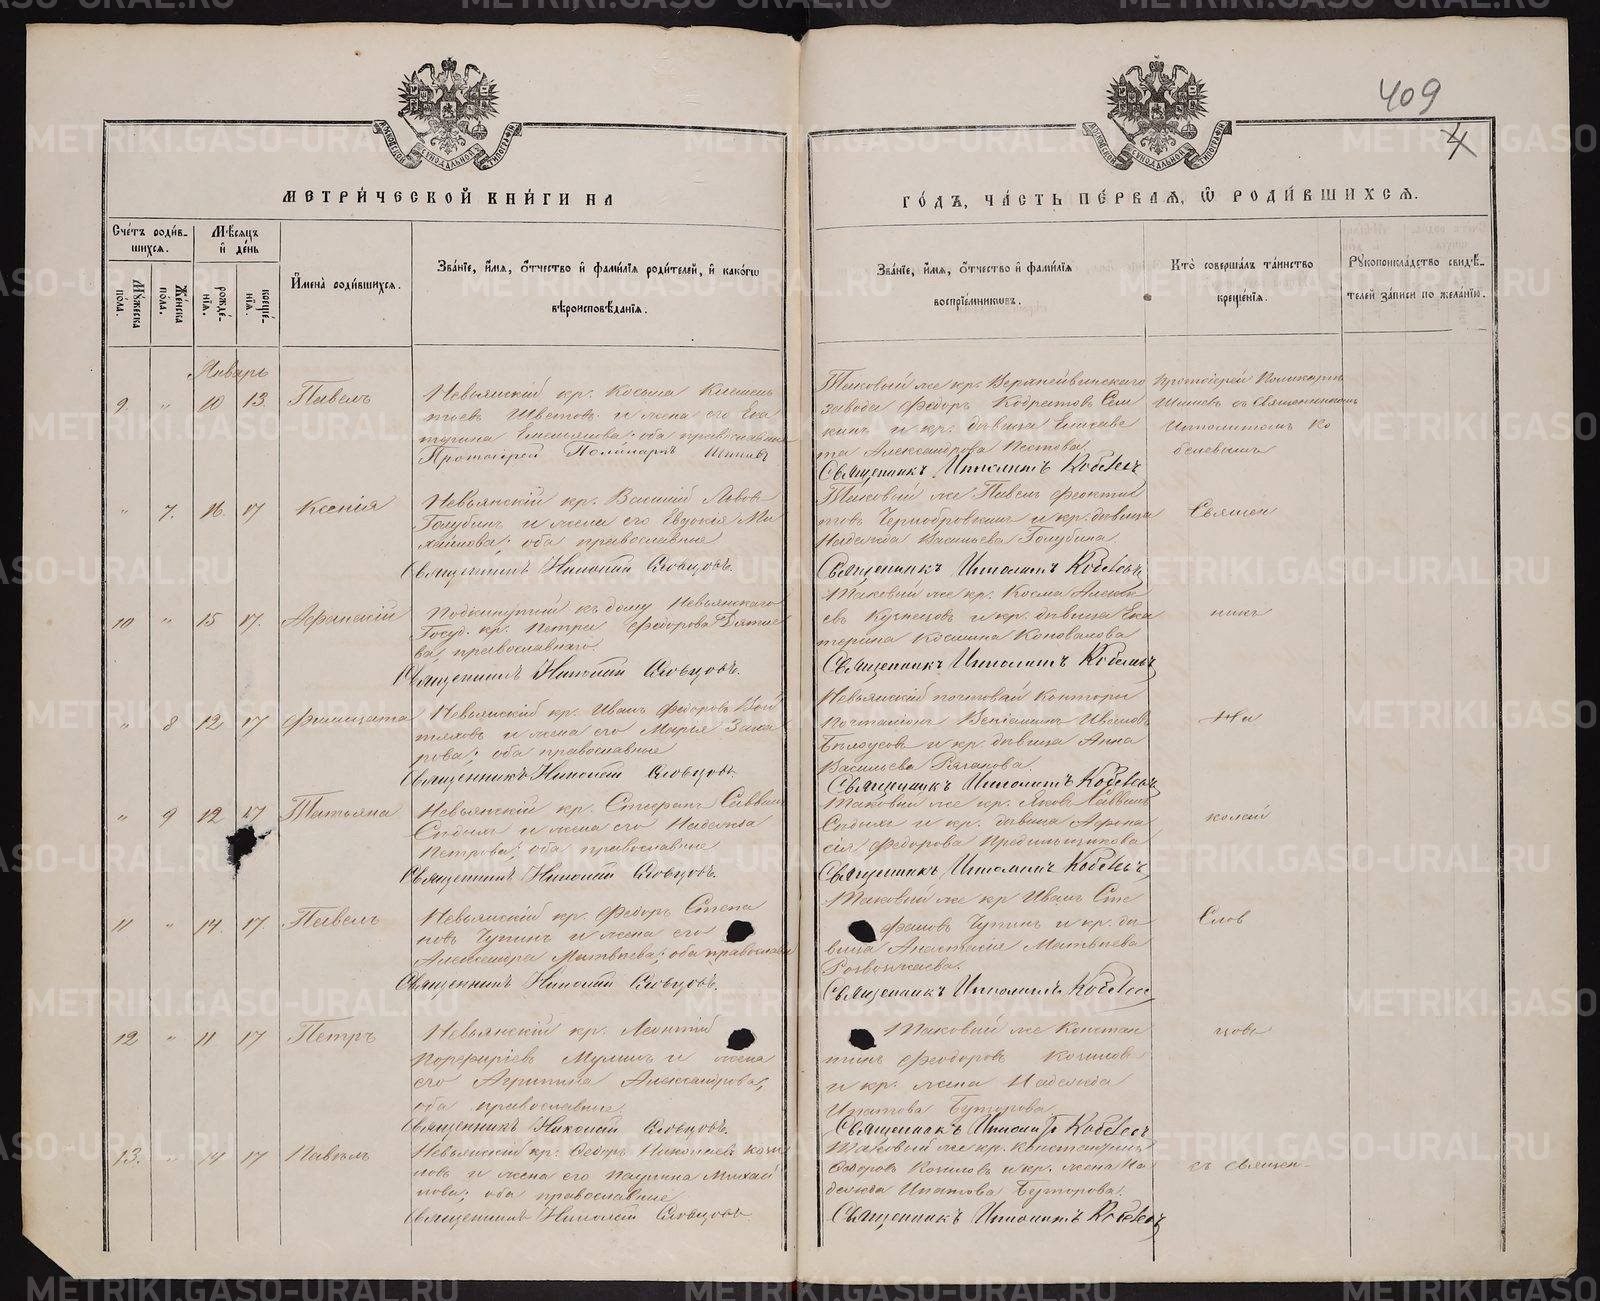 409
4
МЕТРИ́ЧЕСКОЙ КНИ́ГИ НА
ГО́ДЪ, ЧА́СТЬ ПЕ́РВАѦ, Ѽ РОДИ́ВШИХСѦ.
Сче́тъ роди́в-
шихсѧ.
Мꙋ́жеска по́ла.
Же́нска по́ла.
Мѣ́сѧцъ
и҆ де́нь
рожде́-
нїѧ.
креще́-
нїѧ.
И҆мена̀ роди́вшихсѧ.
Зва́нїе, и҆́мѧ, ѻ҆́тчество и҆ фами́лїѧ роди́телей, и҆ како́гѡ
вѣроисповѣ́данїѧ.
Зва́нїе, и҆́мѧ, ѻ҆́тчество и҆ фами́лїѧ
воспрїе́мникѡвъ.
Кто̀ соверша́лъ та́инство
креще́нїѧ.
Рꙋкоприкла́дство свидѣ́-
телей за́писи по жела́нїю.
Январь
9. " 10 13. Павелъ
Невьянскій кр. Косьма Климен
тьев и жена его Ека
терина Емельянова; оба православные
Протоіерей Поликарпъ
Таковый же кр. Верхнейвинскаго
завода Федоръ Кодратовъ Сем
кинъ и кр. дѣвица Елисаве
та Александрова
Священникъ Ипполитъ Кобелевъ
Протоіерей Поликарпъ
съ священникомъ
Ипполитомъ Ко
белевымъ
" 7. 16. 17 Ксенія
Невьянскій кр. Василій Львов
Голубинъ и жена его Евдокія Ми
хайлова; оба православные
Священникъ Николай Словцовъ.
Таковый же Павелъ Феоктис
товъ Чернобровкинъ и кр. дѣвица
Надежда Васильева Голубина.
Священникъ Ипполитъ Кобелевъ
Священ
10 " 15 17. Афанасій
Подкинутый къ дому Невьянскаго
Госуд. кр. Петра Федорова
православнаго
Священникъ Николай Словцовъ.
Таковый же кр. Косма Алексѣ
евъ Кузнецовъ и кр. дѣвица Ека
терина Космина Коновалова
Священникъ Ипполитъ Кобелевъ
никъ
" 8 12 17 Филицата
Невьянскій кр. Иванъ Федоровъ Вой
тяховъ и жена его Марья Заха
рова; оба православные
Священникъ Николай Словцовъ.
Невьянской почтовой Конторы
Почталіонъ Веніаминъ Ивановъ
Бѣлоусовъ и кр. дѣвица Анна
Васильева
Священникъ Ипполитъ Кобелевъ
Ни
" 9 12 17 Татьяна
Невьянскій кр. Стефанъ Саввинъ
Сѣдыхъ и жена его Надежда
Петрова; оба православные
Священникъ Николай Словцовъ.
Таковый же кр. Яковъ Саввинъ
Сѣдыхъ и кр. дѣвица Афана
сія Федорова Предильщикова
Священникъ Ипполитъ Кобелевъ
колай
11 " 14. 17. Павелъ
Невьянскій кр. Федоръ Степа
новъ Чупинъ и жена его
Александра Матвѣева; оба православн
Священникъ Николай Словцовъ.
Таковый же кр Иванъ Сте
фановъ Чупинъ и кр. дѣ
вица Анастасія Матвѣева
Священникъ Ипполитъ Кобелев
Слов
12 " 11 17 Петръ
Невьянскій кр. Леонтій
Порфиріевъ Мулинъ и жена
его Агрипина Александрова;
оба православные
Священникъ Николай Словцовъ.
Таковый же Констан
тинъ Феодоровъ Кочиновъ
и кр. жена Надежда
Ипатова Буторова
Священникъ Ипполитъ Кобелевъ
цовъ
13. " 14 17 Павелъ
Невьянскій кр. Федоръ Николаевъ Кочи
новъ и жена его Паулина Михай
лова; оба православные
Священникъ Николай Словцовъ
Таковый же кр. Константинъ
Федоровъ Кочиновъ и кр. жена На
дежда Ипатова Буторова.
Священникъ Ипполитъ Кобелевъ
съ священ-
METRIKI.GASO-URAL.RU